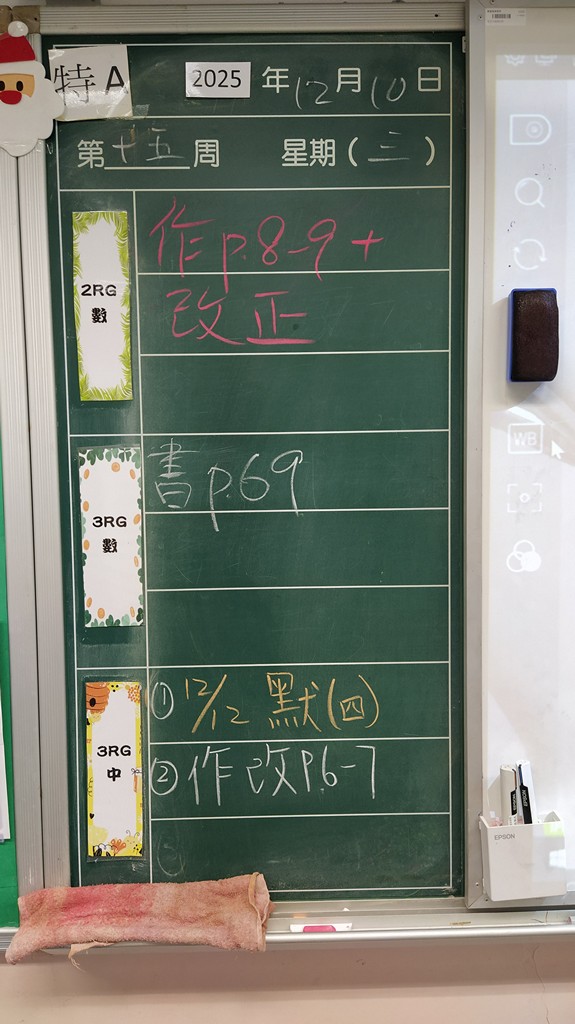 特A
2025 年 12 月 10 日
第 十五 周 星期 ( 三 )
2RG
數
作 p.8-9 +
改正
3RG
數
書 p.69
3RG
中
① 12/12 默(四)
② 作改 P.6-7
WB
EPSON